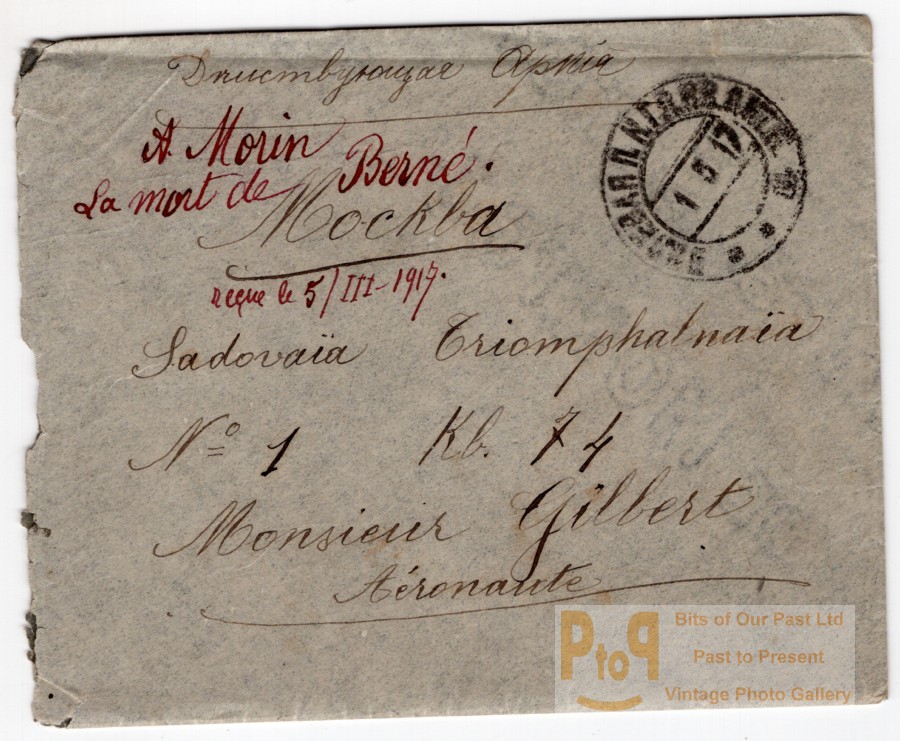 Дѣйствующая Армія
A. Morin
La mort de Berné.
Москва
reçue le 5/III-1917.
Sadovaïa Triomphalnaïa
Nº 1 Kb. 74
Monsieur Gilbert
Aéronaute
1 5 17
PtoP
Bits of Our Past Ltd
Past to Present
Vintage Photo Gallery